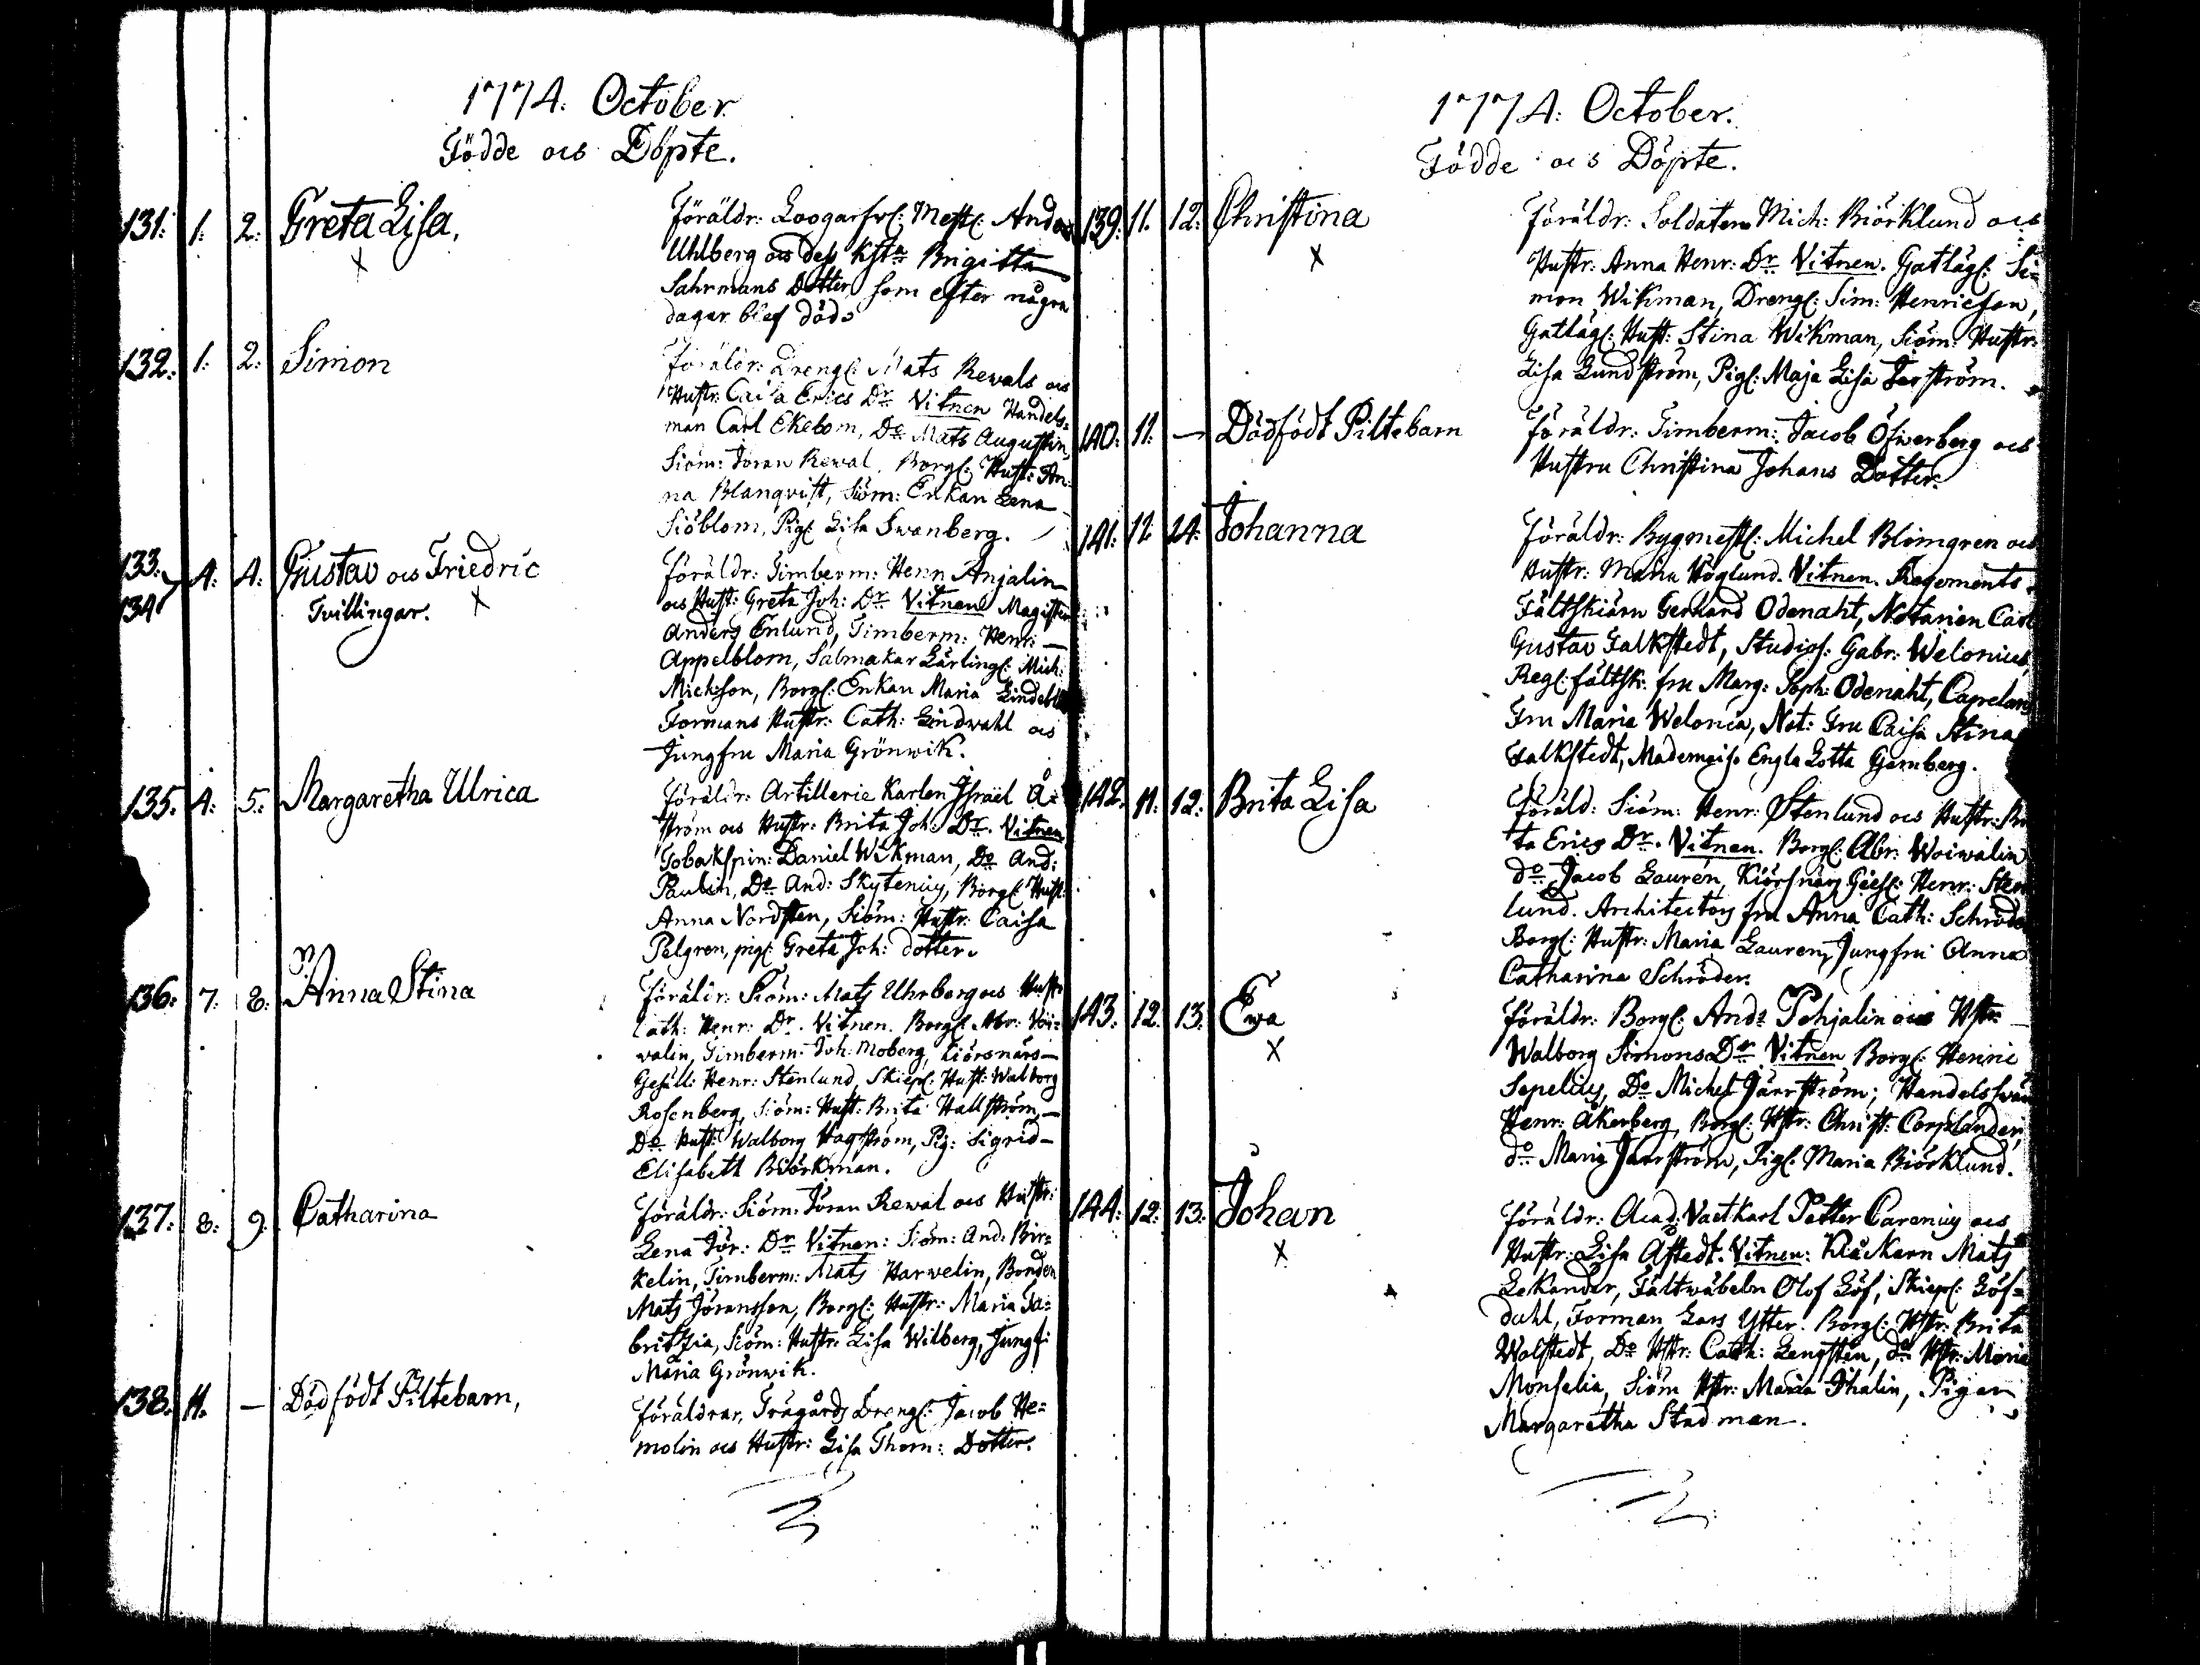 1774. October.
Födde och Döpte.
131. 1. 2. Greta Lisa, Föräldr: Mest: Anders
X Uhlberg och dess Hst: Brigitta
Sahrmans Dotter som efter några
dagar blef död
132. 1. 2. Simon Föräldr: Drengs: Mats Rewals och
Hustr: Caisa Erics Dr Vitnen Handels-
man Carl Ekebom, Do Mats Augustin,
Siöm: Jöran Rewal, Borgs: Hust: An-
na Blanqvist, Siöm: Enkan Lena
Siöblom, Pigs Lisa Swanberg.
133. 4. 4. Gustav och Friedric Föräldr: Timberm: Henr Anjalin
134 Tvillingar. X och Hust: Greta Joh: Dr Vitnen Magister
Anders Enlund, Timberm: Henr:
Appelblom, Salmakar Lärlings: Mich:
Mickson, Borgs: Enkan Maria
Formans Hustr: Cath: Lindwahl och
Jungfru Maria Grönwik.
135. 4. 5. Margaretha Ulrica Föräldr: Artillerie Karlen Israel Å-
ström och Hustr: Brita Joh: Dr. Vitnen
Tobakspin: Daniel Wikman, Do And:
Paulin, Do And: Skytenius, Borgs Hust:
Anna Nordsten, Siöm: Hustr: Caisa
Pelgren, pigs: Greta Joh: dotter.
136. 7. 8. Anna Stina Föräldr: Siöm: Mats Uhrberg och Hustr
Cath: Henr: Dr. Vitnen. Borgs: Abr: Woi-
walin, Timberm: Joh: Moberg, Kiörsnärs-
Gesäll: Henr: Stenlund, Skieps: Hust: Walborg
Rosenberg, Siöm: Hust: Brita Hallström,
Do Hust: Walborg Hagström, Pig: Sigrid
Elisabeth Biörkman.
137. 8. 9. Catharina Föräldr: Siöm: Jöran Rewal och Hustr:
Lena Jör: Dr Vitnen: Siöm: And: Bir-
kelin, Timberm: Mats Harwelin, Bonden
Mats Jöransson, Borgs: Hustr: Maria Fa-
britzia, Siöm: Hustr: Lisa Wilberg, Jungf:
Maria Grönwik.
138. 11. — Dödfödt Piltebarn, Föräldrar, Trägårds Drengs: Jacob He-
molin och Hustr: Lisa Thom: Dotter.
1774. October.
Födde och Döpte.
139. 11. 12. Christina Föräldr: Soldaten Mich: Biörklund och
X Hustr: Anna Henr: Dr Vitnen. Gatlägs: Si-
mon Wikman, Drengs: Sim: Henricson,
Gatlägs: Hust: Stina Wikman, Siöm: Hustr:
Lisa Lundström, Pigs: Maja Lisa Forström.
140. 11. — Dödfödt Piltebarn Föräldr: Timberm: Jacob Öfwerberg och
Hustru Christina Johans Dotter.
141. 11. 14. Johanna Föräldr: Bygmest: Michel Blomgren och
Hustr: Maria Höglund. Vitnen. Regements
Fältskiärn Gerhard Odenaht, Notarien Carl
Gustav Falkstedt, Studios: Gabr: Welonius,
Regs: fältsk: fru Marg: Soph: Odenaht, Capelans
Fru Maria Welonia, Not: Fru Caisa Stina
Falkstedt, Mademois: Engla Lotta Gernberg.
142. 11. 12. Brita Lisa Föräld: Siöm: Henr: Stenlund och Hustr: Bri
ta Erics Dr. Vitnen. Borgs: Abr: Woiwalin
do Jacob Lauren, Kiörsnärs Gesäl: Henr: Sten
lund. Architectors fru Anna Cath: Schröder
Borgs: Hustr: Maria Lauren, Jungfru Anna
Catharina Schröder.
143. 12. 13. Ewa Föräldr: Borgs: And: Pohjalin och Hstr:
X Walborg Simons Dr Vitnen Borgs: Henric
Sepelius, Do Michel Järrström; Handelsswän
Henr: Åkerberg, Borgs: Hstr: Christ: Corplander,
do Maria Järrström, Pigs: Maria Biörklund.
144. 12. 13. Johan Föräldr: Acad: Vactkarl Petter Carenius och
X Hustr: Lisa Åstedt. Vitnen: Klåckarn Mats
Lekander, Fältwäbeln Olof Löf, Skieps: Löf-
dahl, Forman Lars Ytter. Borgs: Hstr: Brita
Walstedt, Do Hstr: Cath: Lengsten, do Hstr: Maria
Monselia, Siöm Hstr: Maria Thalin, Pigan
Margaretha Stadman.